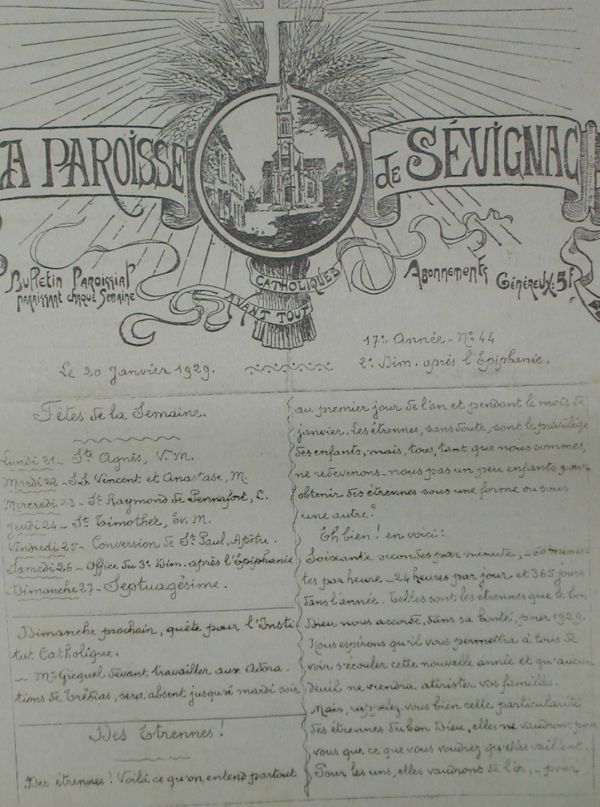 A PAROISSE
de SÉVIGNAC
CATHOLIQUES
AVANT TOUT
Bulletin Paroissial
paraissant chaque Semaine
Abonnements
Généreux: 5f
17e Année - No 44
Le 20 Janvier 1929.
2e Dim. après l'Epiphanie.
Fêtes de la Semaine.
Lundi 21 - Ste Agnès, V. M.
Mardi 22 - S.S. Vincent et Anastase, M.
Mercredi 23 - St Raymond de Pennafort, C.
Jeudi 24 - St Timothée, Ev. M.
Vendredi 25 - Conversion de St Paul, Apôtre.
Samedi 26 - Office du 3e Dim. après l'Epiphanie
Dimanche 27 - Septuagésime.
Dimanche prochain, quête pour l'Insti
tut Catholique.
- Mr Gicquel devant travailler aux Adora.
tions de Trédias, sera absent jusqu'à mardi soir
Des Etrennes!
Des étrennes! Voilà ce qu'on entend partout
au premier jour de l'an et pendant le mois de
janvier. Les étrennes, sans doute, sont le privilège
des enfants, mais, tous, tant que nous sommes,
ne redevenons-nous pas un peu enfants pour
obtenir des étrennes sous une forme ou sous
une autre?
Eh bien! en voici:
Soixante secondes par minute, - 60 minu
tes par heure - 24 heures par jour et 365 jours
dans l'année. Telles sont les étrennes que le bon
Dieu nous accorde, dans sa bonté, pour 1929.
Nous espérons qu'il vous permettra à tous de
voir s'écouler cette nouvelle année et qu'aucun
deuil ne viendra attrister vos familles.
Mais, rappelez-vous bien cette particularité
des étrennes du bon Dieu, elles ne vaudront pour
vous que ce que vous voudrez qu'elles vaillent.
Pour les uns, elles vaudront de l'or, - pour